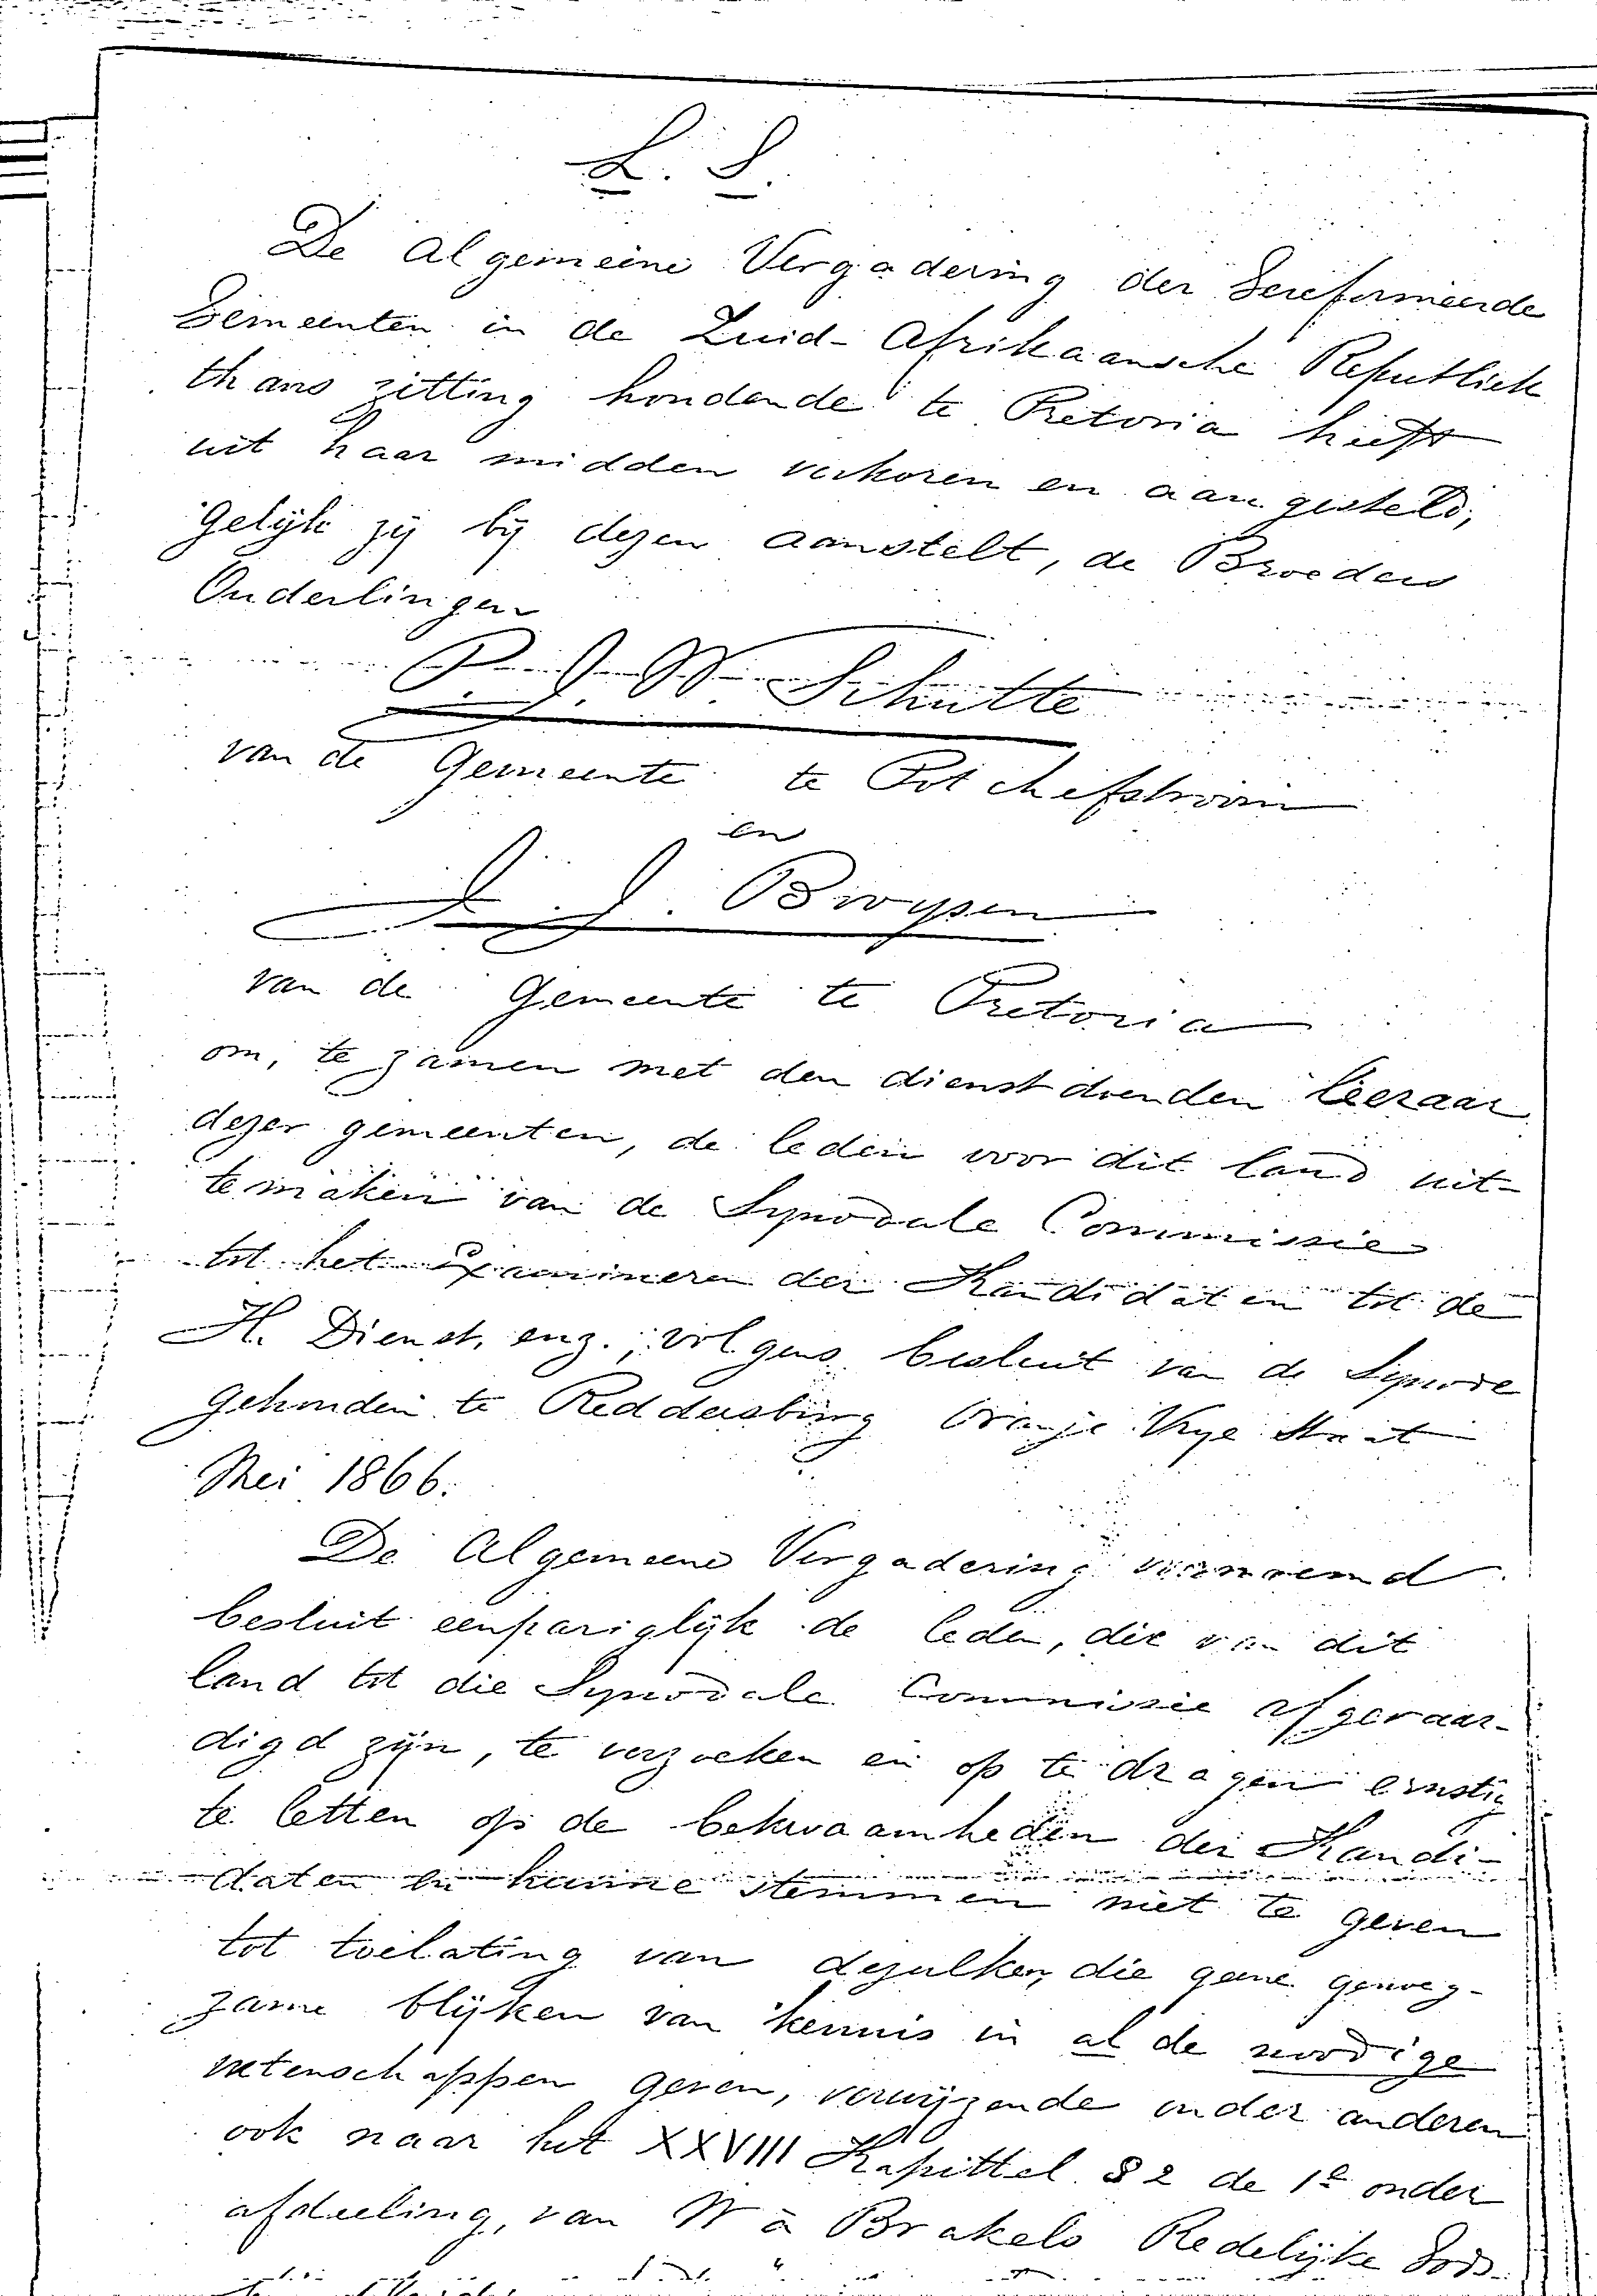 L. S.
De Algemeene Vergadering der Gereformeerde
Gemeenten in de Zuid-Afrikaansche Republiek
thans zitting houdende te Pretoria heeft
uit haar midden verkoren en aangesteld,
Gelijk zij bij dezen aanstelt, de Broeders
Ouderlingen
P. J. W. Schutte
van de Gemeente te Potchefstroom
en
J. J. Bruysen
van de Gemeente te Pretoria
om, te zamen met den dienstdoenden leeraar
dezer gemeenten, de leden voor dit land uit-
temaken van de Synodale Commissie
tot het Examineren der Kandidaten tot de
H. Dienst, enz.; volgens besluit van de Synode
Gehouden te Reddersburg Oranje Vrye Staat
Mei 1866.
De Algemeene Vergadering voornoemd
besluit eenpariglijk de leden, die van dit
land tot die Synodale Commissie afgevaar-
digd zijn, te verzoeken en op te dragen ernstig
te letten op de bekwaamheden der Kandi-
daten en hunne stemmen niet te geven
tot toelating van dezulken, die geene genoeg-
zame blijken van kennis in al de noodige
wetenschappen geven, verwijzende onder anderen
ook naar het XXVIII Kapittel § 2 de 1e onder
afdeeling, van W à Brakels Redelijke Gods-